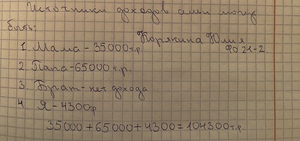 Источники доходов моей могут
быть:
Корякина Юлия
ФО 21-2
1. Мама - 35000 т.р.
2. Папа - 65000 т.р.
3. Брат - нет дохода
4. Я - 4300р
35000 + 65000 + 4300 = 104300 т.р.